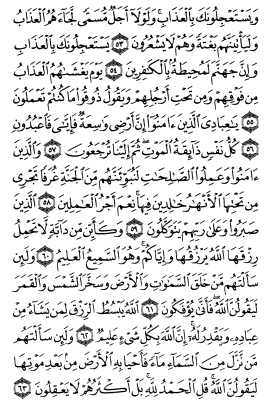 وَيَسْتَعْجِلُونَكَ بِالْعَذَابِ وَلَوْلَا أَجَلٌ مُّسَمًّى لَّجَاءَهُمُ الْعَذَابُ
وَلَيَأْتِيَنَّهُم بَغْتَةً وَهُمْ لَا يَشْعُرُونَ ٥٣ يَسْتَعْجِلُونَكَ بِالْعَذَابِ
وَإِنَّ جَهَنَّمَ لَمُحِيطَةٌ بِالْكَافِرِينَ ٥٤ يَوْمَ يَغْشَاهُمُ الْعَذَابُ
مِن فَوْقِهِمْ وَمِن تَحْتِ أَرْجُلِهِمْ وَيَقُولُ ذُوقُوا مَا كُنتُمْ تَعْمَلُونَ
٥٥ يَاعِبَادِيَ الَّذِينَ ءَامَنُوا إِنَّ أَرْضِي وَاسِعَةٌ فَإِيَّايَ فَاعْبُدُونِ
٥٦ كُلُّ نَفْسٍ ذَائِقَةُ الْمَوْتِ ثُمَّ إِلَيْنَا تُرْجَعُونَ ٥٧ وَالَّذِينَ
ءَامَنُوا وَعَمِلُوا الصَّالِحَاتِ لَنُبَوِّئَنَّهُم مِّنَ الْجَنَّةِ غُرَفًا تَجْرِي
مِن تَحْتِهَا الْأَنْهَارُ خَالِدِينَ فِيهَا نِعْمَ أَجْرُ الْعَامِلِينَ ٥٨ الَّذِينَ
صَبَرُوا وَعَلَى رَبِّهِمْ يَتَوَكَّلُونَ ٥٩ وَكَأَيِّن مِّن دَابَّةٍ لَّا تَحْمِلُ
رِزْقَهَا اللَّهُ يَرْزُقُهَا وَإِيَّاكُمْ وَهُوَ السَّمِيعُ الْعَلِيمُ ٦٠ وَلَئِن
سَأَلْتَهُم مَّنْ خَلَقَ السَّمَاوَاتِ وَالْأَرْضَ وَسَخَّرَ الشَّمْسَ وَالْقَمَرَ
لَيَقُولُنَّ اللَّهُ فَأَنَّى يُؤْفَكُونَ ٦١ اللَّهُ يَبْسُطُ الرِّزْقَ لِمَن يَشَاءُ مِنْ
عِبَادِهِ وَيَقْدِرُ لَهُ إِنَّ اللَّهَ بِكُلِّ شَيْءٍ عَلِيمٌ ٦٢ وَلَئِن سَأَلْتَهُم
مَّن نَّزَّلَ مِنَ السَّمَاءِ مَاءً فَأَحْيَا بِهِ الْأَرْضَ مِن بَعْدِ مَوْتِهَا
لَيَقُولُنَّ اللَّهُ قُلِ الْحَمْدُ لِلَّهِ بَلْ أَكْثَرُهُمْ لَا يَعْقِلُونَ ٦٣